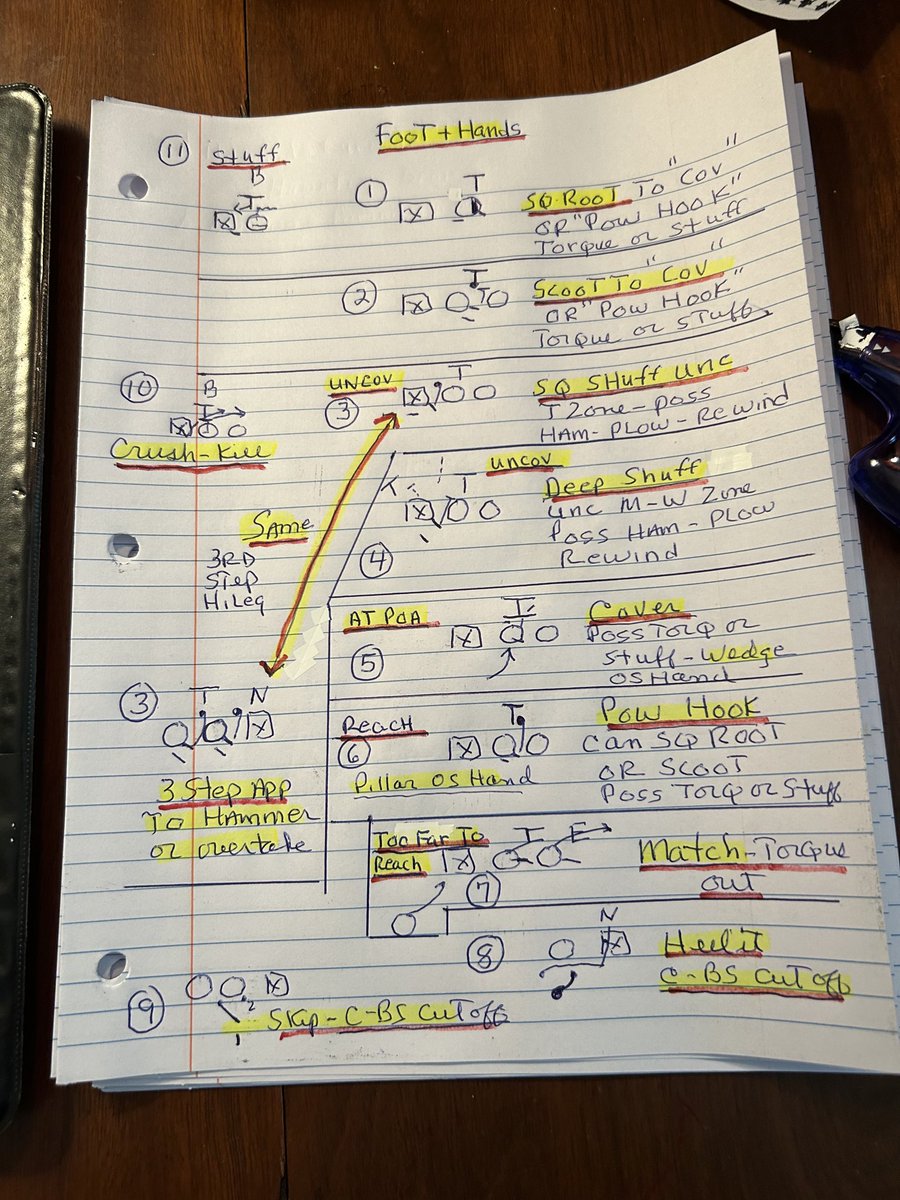 Foot + Hands
⑪ Stuff
B
T
X
① T
X
SQ. ROOT To "Cov"
OR "Pow Hook"
Torque or Stuff
② T
X T
Scoot To "Cov"
OR "Pow Hook"
Torque or Stuff
⑩ B
T
X
Crush-Kill
UNCOV
③ T
X
SQ SHuff Unc
T Zone-poss
HAM-PLOW-Rewind
UNCOV
④ T
X
Deep Shuff
Unc M-W Zone
Poss HAM-PLOW
Rewind
SAme
3RD
Step
HiLeg
AT POA
⑤ T
X
Cover
Poss Torq or
Stuff-Wedge
OS Hand
③ T N
X
3 Step App
To HAmmer
or overtake
REACH
⑥ T
X
Pillar OS Hand
Pow Hook
Can SQ ROOT
OR SCOOT
Poss Torq or Stuff
Too Far To
Reach
⑦ T E
X
Match-Torque
out
⑧ N
X
Heel it
C-BS Cut off
⑨ X
2
1
Skip-C-BS Cut off